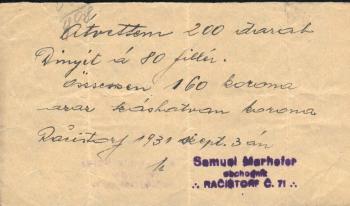 Átvettem 200 darab
Dinyét á 80 fillér.
Összesen 160 korona
azaz százhatvan korona
Račistorf 1931 szept. 3 án
Samuel Marhefer
obchodník
∴ RAČIŠTORF Č. 71 ∴